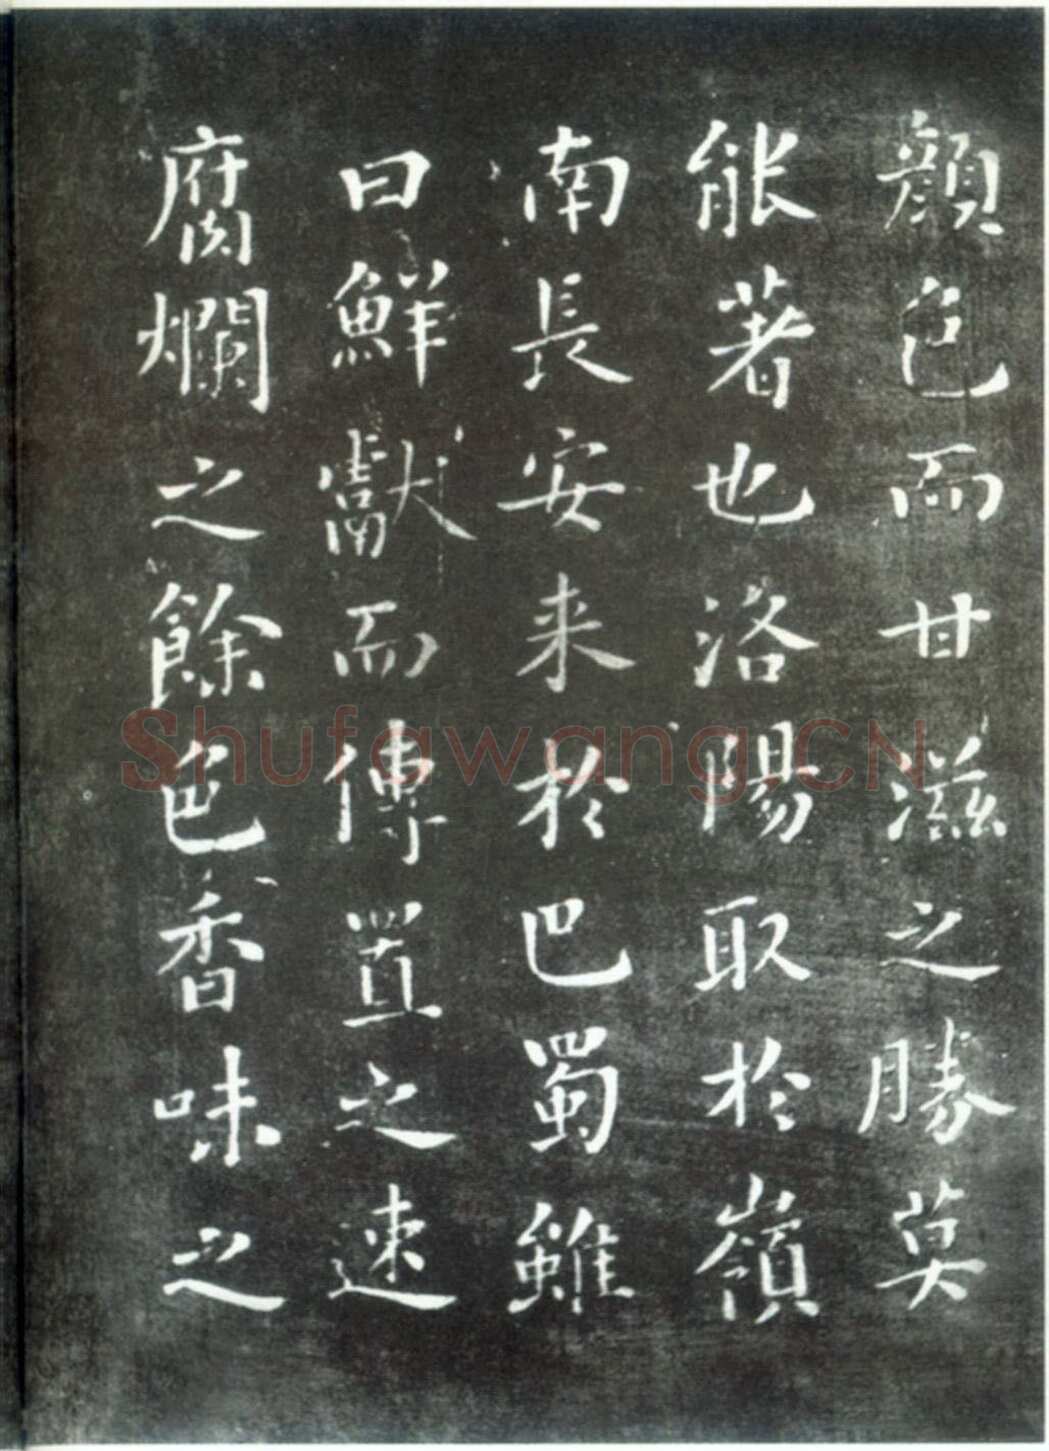 顔色而甘滋之勝莫
能著也洛陽取於嶺
南長安来於巴蜀雖
曰鮮獻而傳置之速
腐爛之餘色香味之
Shufawang.CN